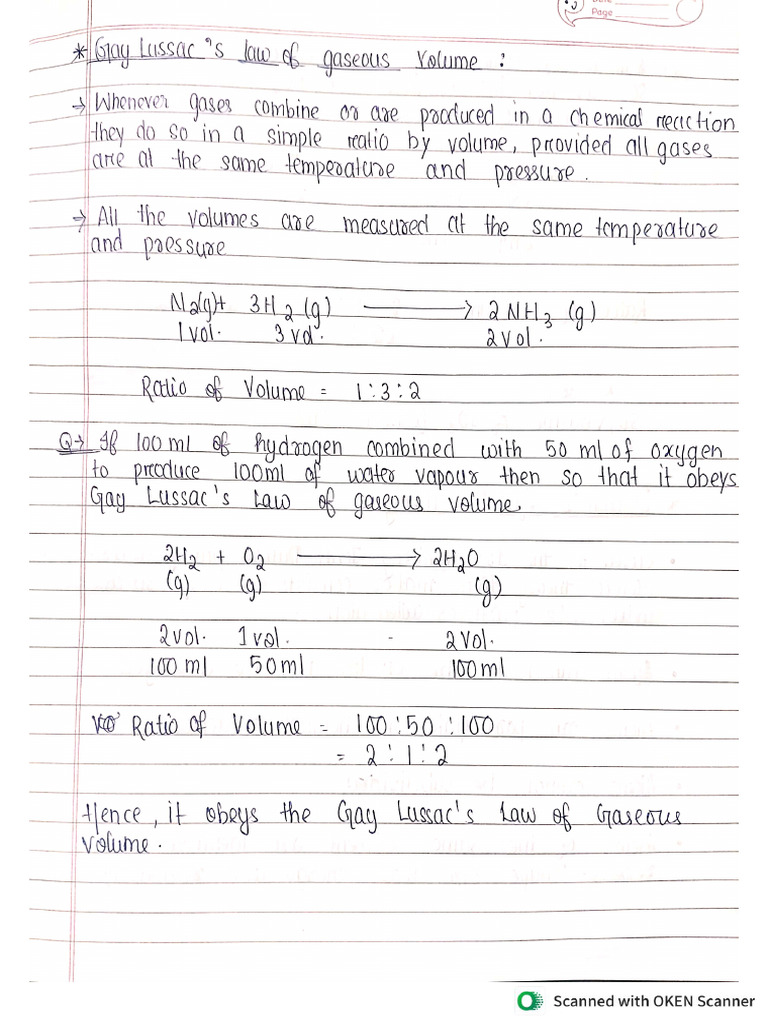 Date
Page
* Gay Lussac's law of gaseous volume :
→ Whenever gases combine or are produced in a chemical reaction
they do so in a simple ratio by volume, provided all gases
are at the same temperature and pressure.
→ All the volumes are measured at the same temperature
and pressure
N2(g)+ 3H2(g) ⟶ 2NH3 (g)
1vol. 3vol. 2vol.
Ratio of Volume = 1:3:2
Q→ If 100ml of hydrogen combined with 50 ml of oxygen
to produce 100ml of water vapour then so that it obeys
Gay Lussac's Law of gaseous volume.
2H2 + O2 ⟶ 2H2O
(g) (g) (g)
2vol. 1vol. - 2Vol.
100 ml 50ml 100ml
Ratio of Volume = 100:50:100
= 2:1:2
Hence, it obeys the Gay Lussac's Law of Gaseous
Volume.
Scanned with OKEN Scanner